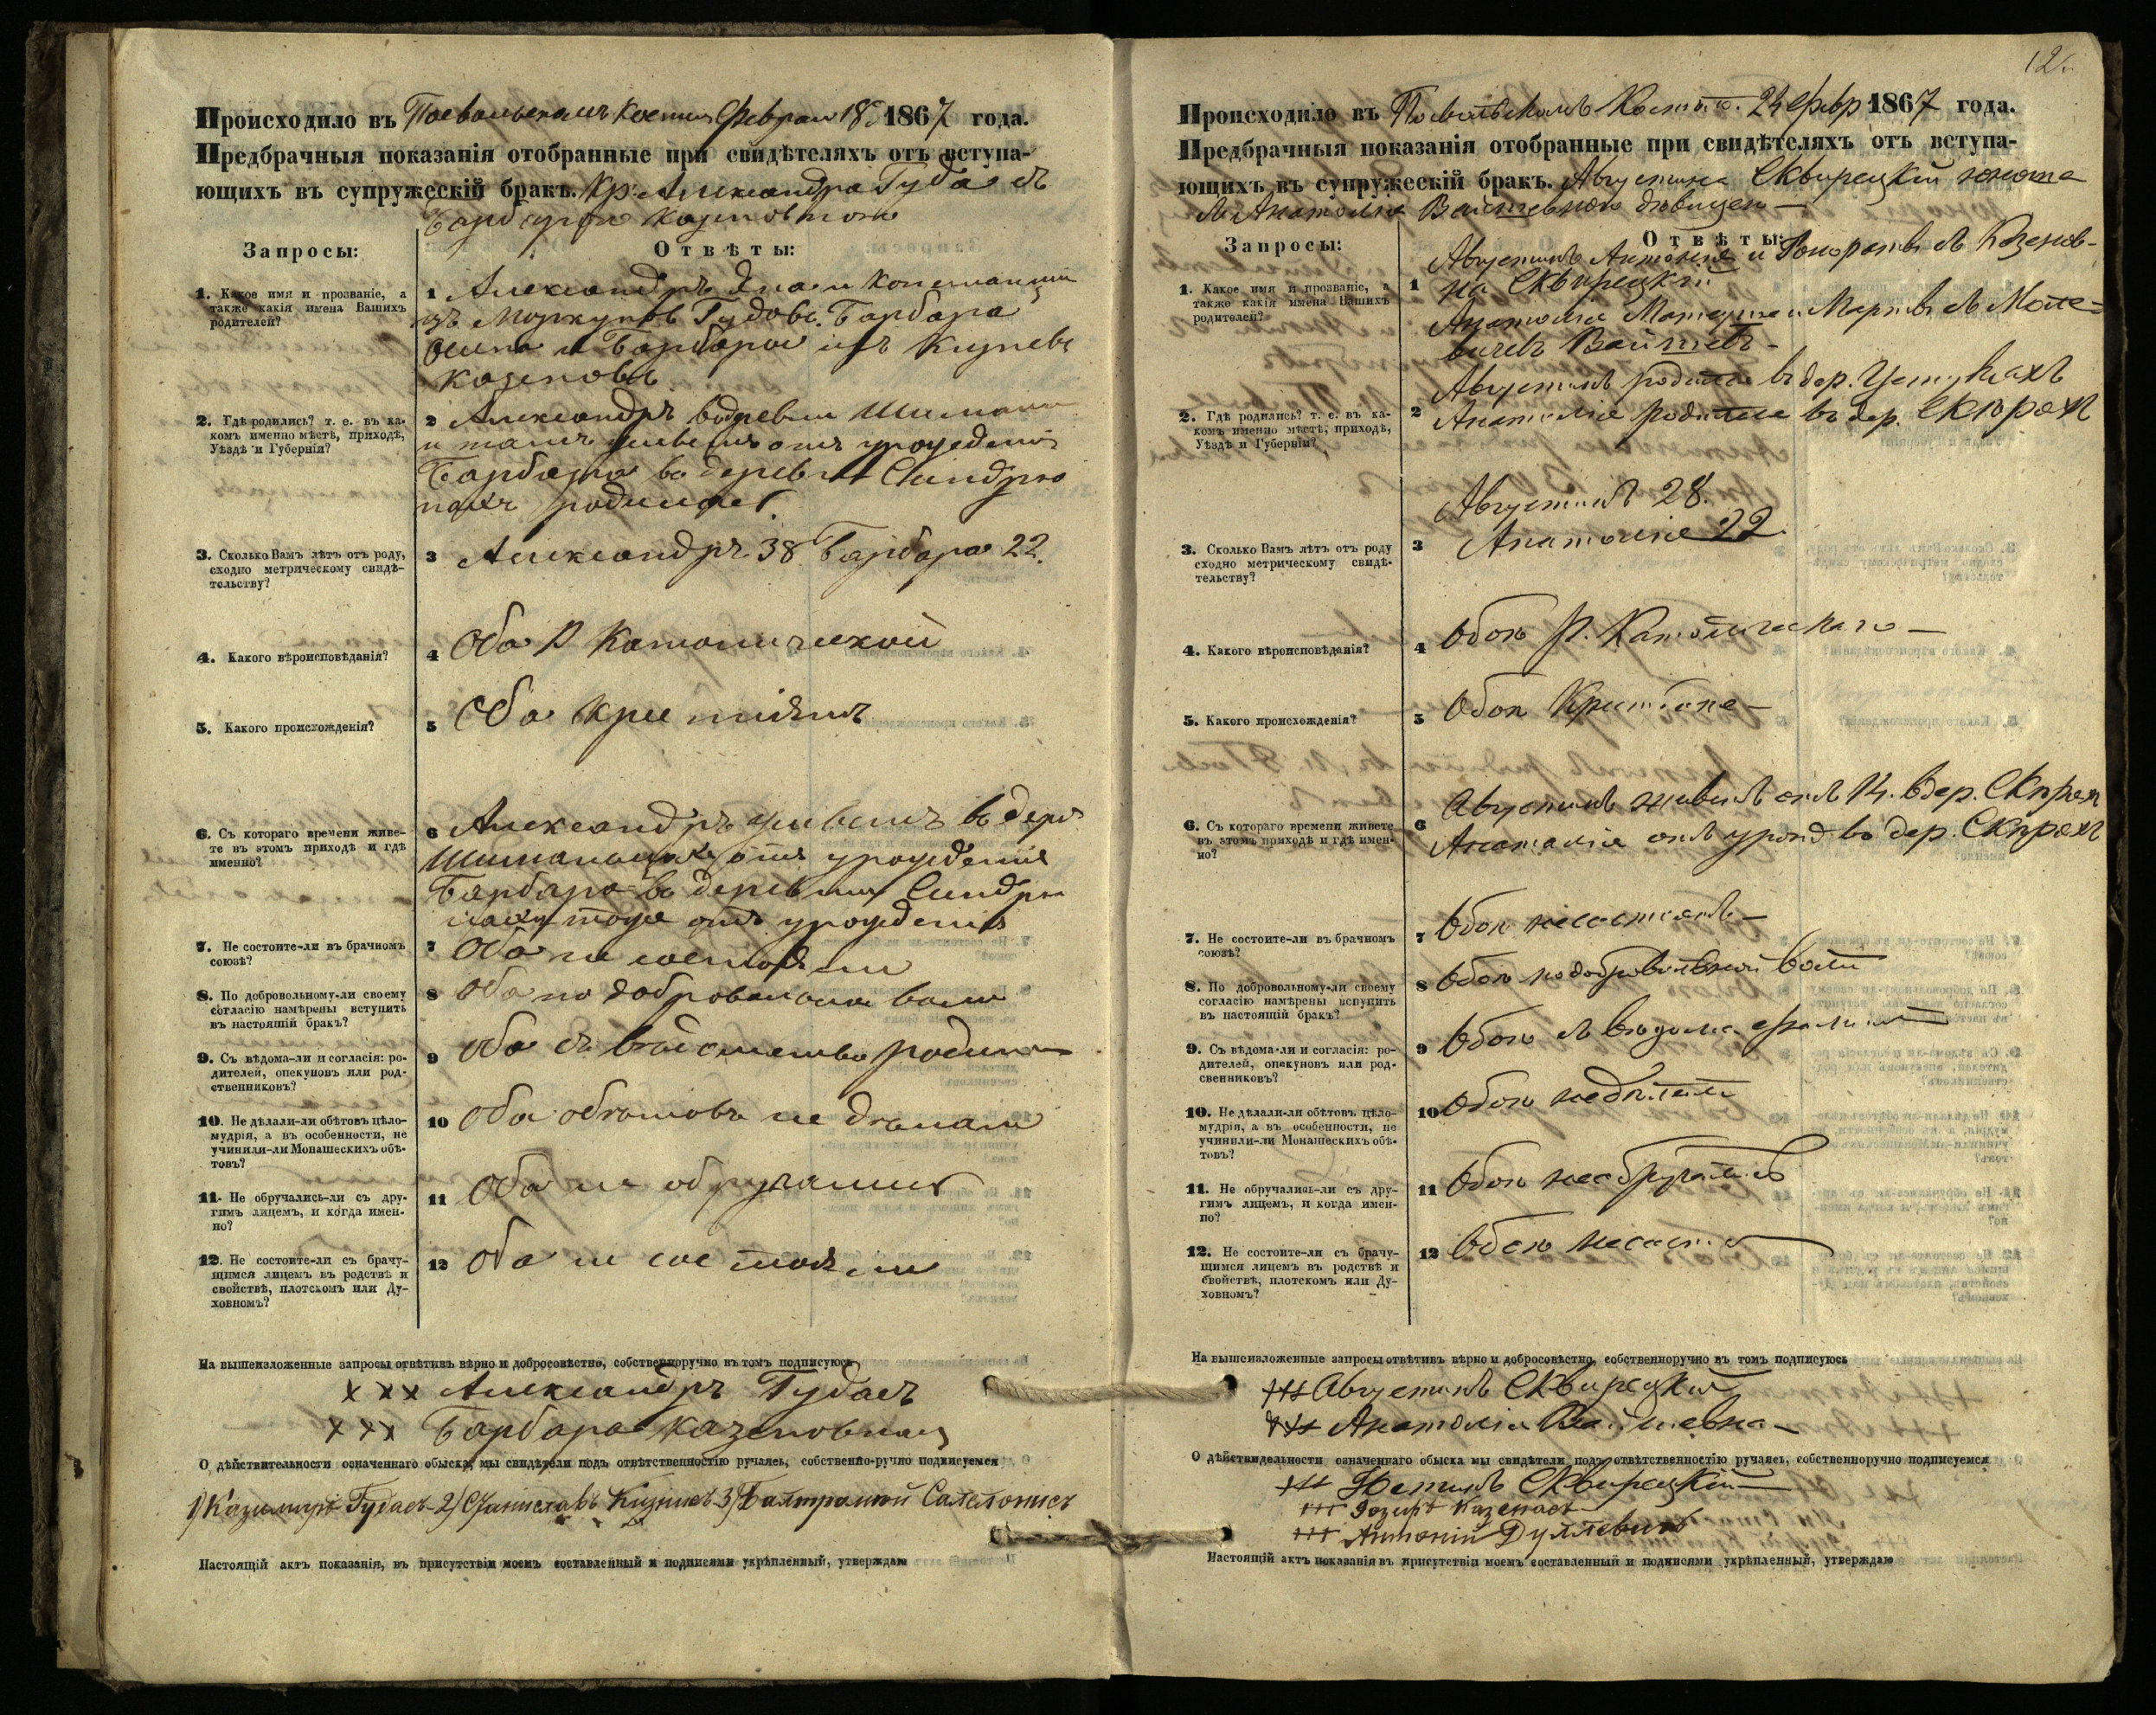 Происходило въ Поевольскомъ Костел Феврал 18. 1867 года.
Предбрачныя показанія отобранные при свидѣтеляхъ отъ вступа-
ющихъ въ супружескій бракъ. Кр. Александра Гудаса съ
Запросы:
Отвѣты:
1. Какое имя и прозваніе, а
также какія имена Вашихъ
родителей?
1 Александръ
Барбара
и Барбары изъ
2. Гдѣ родились? т. е. въ ка-
комъ именно мѣстѣ, приходѣ,
Уѣздѣ и Губерніи?
2 Александръ
и тамъ живетъ отъ урожденія
Барбара въ деревни
родилась.
3. Сколько Вамъ лѣтъ отъ роду,
сходно метрическому свидѣ-
тельству?
3 Александръ 38 Барбара 22.
4. Какого вѣроисповѣданія?
4 Оба Р Католической
5. Какого происхожденія?
5 Оба крестіянъ
6. Съ котораго времени живе-
те въ этомъ приходѣ и гдѣ
именно?
6 Александръ живетъ въ дерев
отъ урожденія
Барбара въ деревни
тоже отъ урожденія
7. Не состоите-ли въ брачномъ
союзѣ?
7 Оба не состояли
8. По добровольному-ли своему
согласію намѣрены вступить
въ настоящій бракъ?
8 Оба по добровольной воли
9. Съ вѣдома-ли и согласія: ро-
дителей, опекуновъ или род-
ственниковъ?
9 Оба съ
10. Не дѣлали-ли обѣтовъ цѣло-
мудрія, а въ особенности, не
учинили-ли Монашескихъ обѣ-
товъ?
10 Оба обѣтовъ не дѣлали
11. Не обручались-ли съ дру-
гимъ лицемъ, и когда имен-
но?
11 Оба не обручались
12. Не состоите-ли съ брачу-
щимся лицемъ въ родствѣ и
свойствѣ, плотскомъ или Ду-
ховномъ?
12 Оба не состояли
На вышеизложенные запросы отвѣтивъ вѣрно и добросовѣстно, собственноручно въ томъ подписуюсь
ххх Александръ Гудасъ
ххх Барбара Казеновная
О дѣйствительности означеннаго обыска, мы свидѣтели подъ отвѣтственностію ручаясь, собственно-ручно подписуемся
1) Казимиръ Гудасъ 2) Станиславъ 3)
Настоящій актъ показанія, въ присутствіи моемъ составленный и подписями укрѣпленный, утверждаю
12.
Происходило въ Повольскомъ Костел. 24 Февр 1867 года.
Предбрачныя показанія отобранные при свидѣтеляхъ отъ вступа-
ющихъ въ супружескій бракъ. Августина Сквирецкій юноша
съ Анатолія дѣвицею —
Запросы:
Отвѣты:
1. Какое имя и прозваніе, а
также какія имена Вашихъ
родителей?
Августинъ Антонія и Гонораты съ Казенов-
1 на Сквирецкій
Анатолія Матеуша и Марты съ
2. Гдѣ родились? т. е. въ ка-
комъ именно мѣстѣ, приходѣ,
Уѣздѣ и Губерніи?
Августинъ родился въ дер.
2 Анатолія родилась въ дер.
3. Сколько Вамъ лѣтъ отъ роду
сходно метрическому свидѣ-
тельству?
Августинъ 28.
3 Анатолія 22.
4. Какого вѣроисповѣданія?
4 Обоя Р. Католическаго —
5. Какого происхожденія?
5 Обоя Крестіяне —
6. Съ котораго времени живете
въ этомъ приходѣ и гдѣ имен-
но?
6 Августинъ живетъ отъ 14. въ дер.
Анатолія отъ урожд въ дер.
7. Не состоите-ли въ брачномъ
союзѣ?
7 Обоя несостоятъ —
8. По добровольному-ли своему
согласію намѣрены вступить
въ настоящій бракъ?
8 Обоя подобровольной воли
9. Съ вѣдома-ли и согласія: ро-
дителей, опекуновъ или род-
свенниковъ?
9 Обоя съ вѣдома
10. Не дѣлали-ли обѣтовъ цѣло-
мудрія, а въ особенности, не
учинили-ли Монашескихъ обѣ-
товъ?
10 Обоя недѣлали
11. Не обручались-ли съ дру-
гимъ лицемъ, и когда имен-
но?
11 Обоя необручались
12. Не состоите-ли съ брачу-
щимся лицемъ въ родствѣ и
свойствѣ, плотскомъ или Ду-
ховномъ?
12 Обою
На вышеизложенные запросы отвѣтивъ вѣрно и добросовѣстно, собственноручно въ томъ подписуюсь
+++ Августинъ Сквирецкій
+++ Анатолія
О дѣйствидельности означеннаго обыска мы свидѣтели подъ отвѣтственностію ручаясь, собственноручно подписуемся
+++ Сквирецкій
+++ Іозефъ Казенасъ
+++ Антоній
Настоящій актъ показанія въ присутствіи моемъ составленный и подписями укрѣпленный, утверждаю